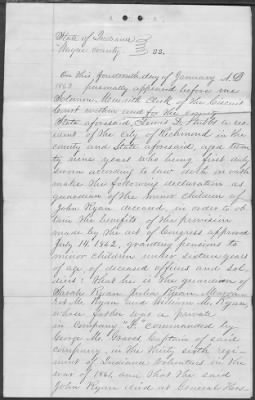 State of Indiana
Wayne County } SS.
On this, fourteenth day of January A.D
1863 personally appeared before me
Solomon Meredith Clerk of the Circuit
Court within and for the County
State aforesaid, Lewis D. a res
ident of the city of Richmond in the
county and State aforesaid, aged twen
ty nine years who being first duly
sworn according to law doth on oath
make the following declaration as
guardian of the minor children of
John Ryan deceased, in order to ob
tain the benefits of the provision
made by the act of Congress approved
July 14, 1862, granting pensions to
minor children under sixteen years
of age of deceased officers and sol
diers: That he is the guardian of
Sarah Ryan, Julia Ryan,
ret M. Ryan and William M. Ryan,
whose father was a private
in Company "F" commanded by
George M. Graves Captain of said
company, in the thirty sixth regi
ment of Indiana Volunteers in the
war of 1861, and that the said
John Ryan died at General Hos